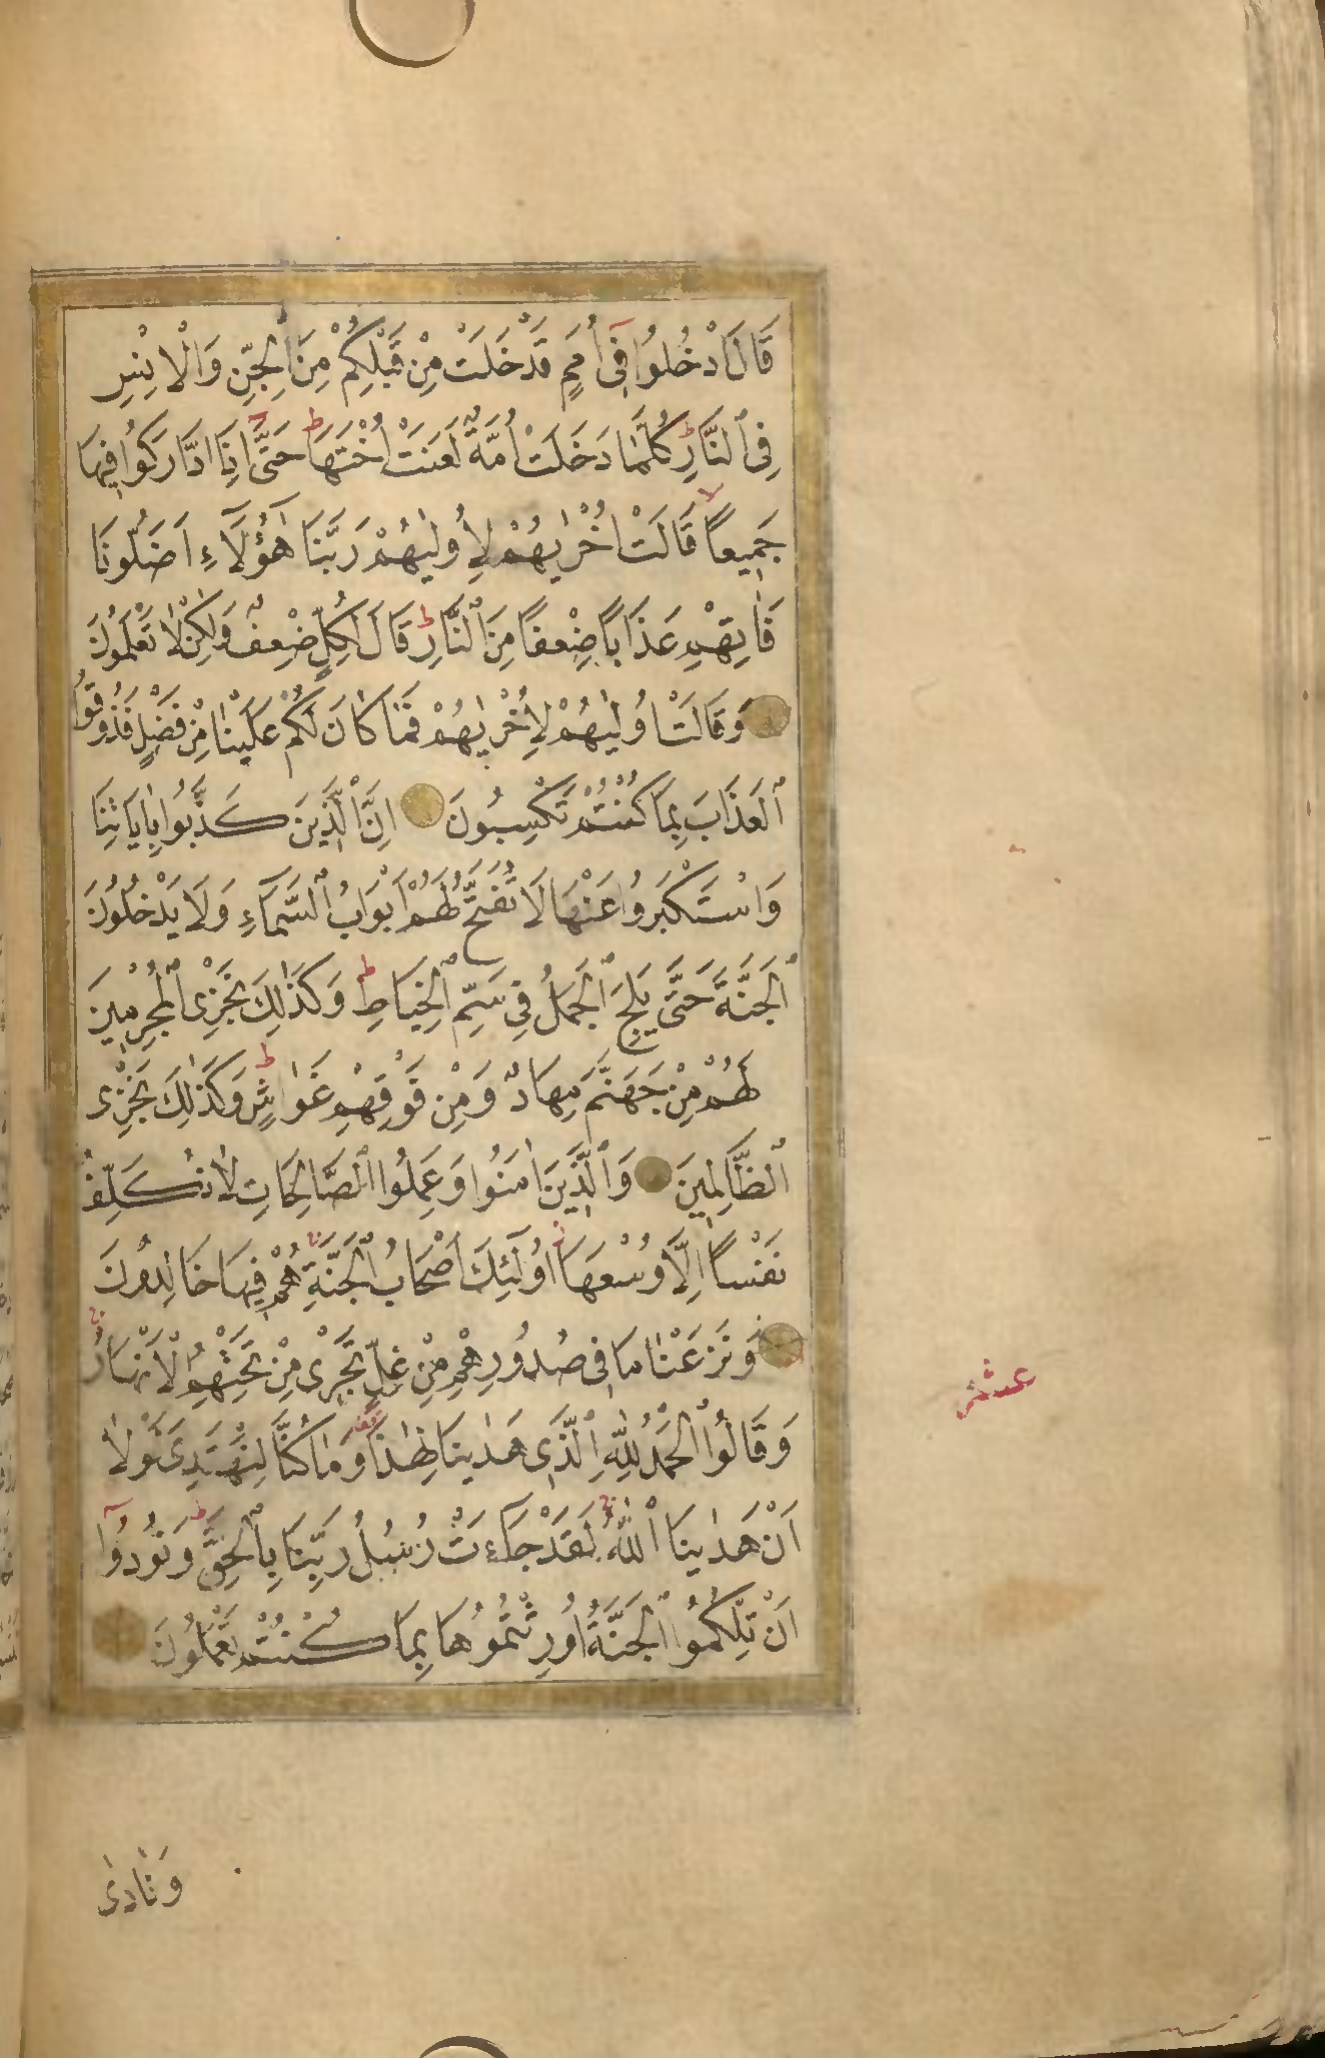 قَالَ ادْخُلُوا فِى أُمَمٍ قَدْ خَلَتْ مِنْ قَبْلِكُمْ مِنَ الْجِنِّ وَالْاِنْسِ
فِى النَّارِ ط كُلَّمَا دَخَلَتْ أُمَّةٌ لَعَنَتْ أُخْتَهَا ط حَتَّى اِذَا ادَّارَكُوا فِيهَا
جَمِيعًا لا قَالَتْ أُخْرٰيهُمْ لِأُولٰيهُمْ رَبَّنَا هٰؤُلَاءِ اَضَلُّونَا
فَاٰتِهِمْ عَذَابًا ضِعْفًا مِنَ النَّارِ ط قَالَ لِكُلٍّ ضِعْفٌ وَلٰكِنْ لَا تَعْلَمُونَ
وَقَالَتْ اُولٰيهُمْ لِأُخْرٰيهُمْ فَمَا كَانَ لَكُمْ عَلَيْنَا مِنْ فَضْلٍ فَذُوقُوا
الْعَذَابَ بِمَا كُنْتُمْ تَكْسِبُونَ اِنَّ الَّذِينَ كَذَّبُوا بِاٰيَاتِنَا
وَاسْتَكْبَرُوا عَنْهَا لَا تُفَتَّحُ لَهُمْ اَبْوَابُ السَّمَاءِ وَلَا يَدْخُلُونَ
الْجَنَّةَ حَتَّى يَلِجَ الْجَمَلُ فِى سَمِّ الْخِيَاطِ ط وَكَذٰلِكَ نَجْزِى الْمُجْرِمِينَ
لَهُمْ مِنْ جَهَنَّمَ مِهَادٌ وَمِنْ فَوْقِهِمْ غَوَاشٍ ط وَكَذٰلِكَ نَجْزِى
الظَّالِمِينَ وَالَّذِينَ اٰمَنُوا وَعَمِلُوا الصَّالِحَاتِ لَا نُكَلِّفُ
نَفْسًا اِلَّا وُسْعَهَا اُولٰئِكَ اَصْحَابُ الْجَنَّةِ هُمْ فِيهَا خَالِدُونَ
وَنَزَعْنَا مَا فِى صُدُورِهِمْ مِنْ غِلٍّ تَجْرِى مِنْ تَحْتِهِمُ الْاَنْهَارُ ج
وَقَالُوا الْحَمْدُ لِلّٰهِ الَّذِى هَدٰينَا لِهٰذَا وَمَا كُنَّا لِنَهْتَدِىَ لَوْلَا
اَنْ هَدٰينَا اللّٰهُ ج لَقَدْ جَاءَتْ رُسُلُ رَبِّنَا بِالْحَقِّ ط وَنُودُوا
اَنْ تِلْكُمُ الْجَنَّةُ اُورِثْتُمُوهَا بِمَا كُنْتُمْ تَعْمَلُونَ
عشر
وَنَادٰى